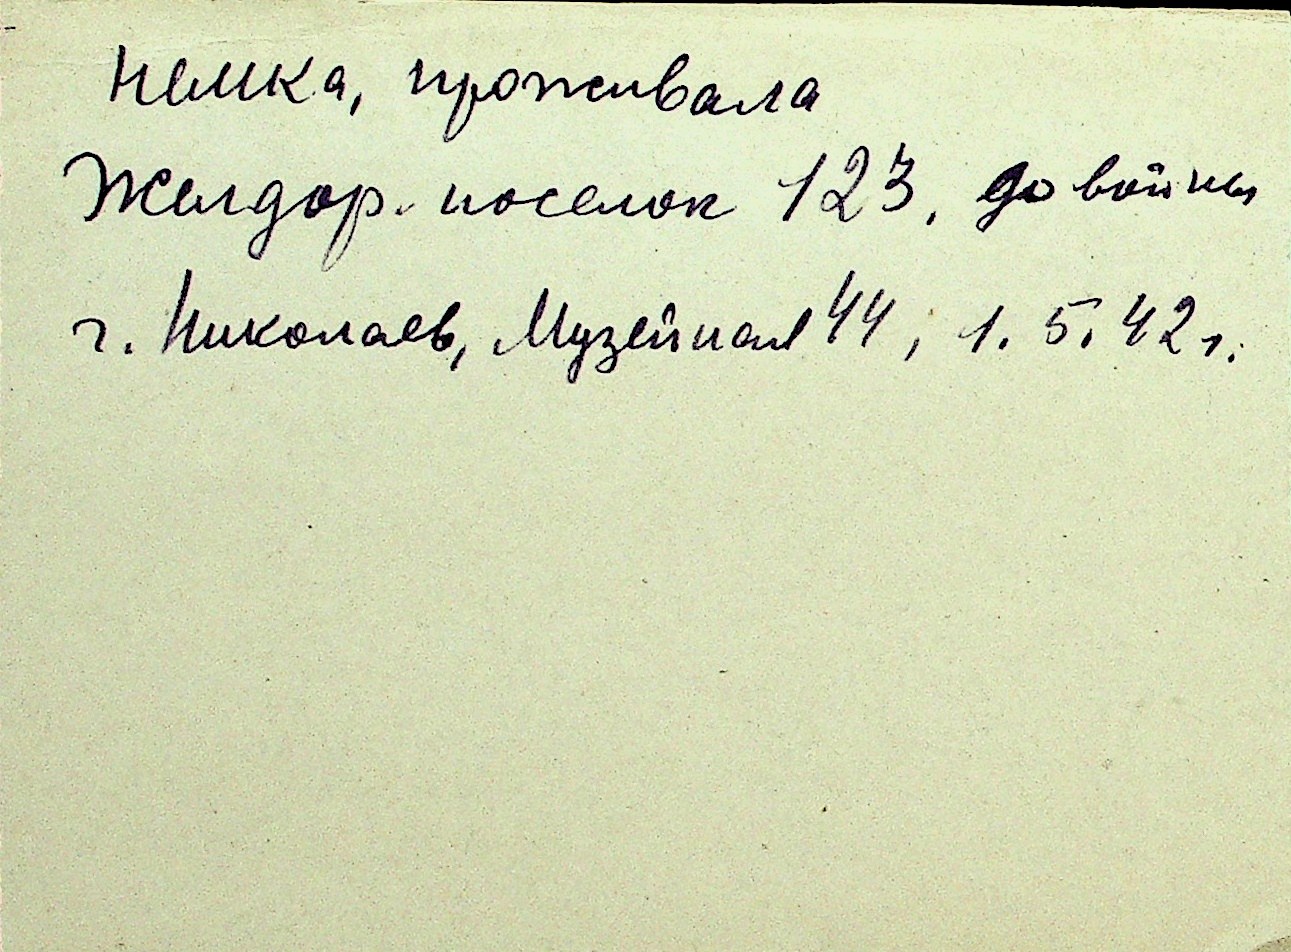 немка, проживала
Желдор. поселок 123, до войны
г. Николаев, Музейная 44, 1.5.42 г.